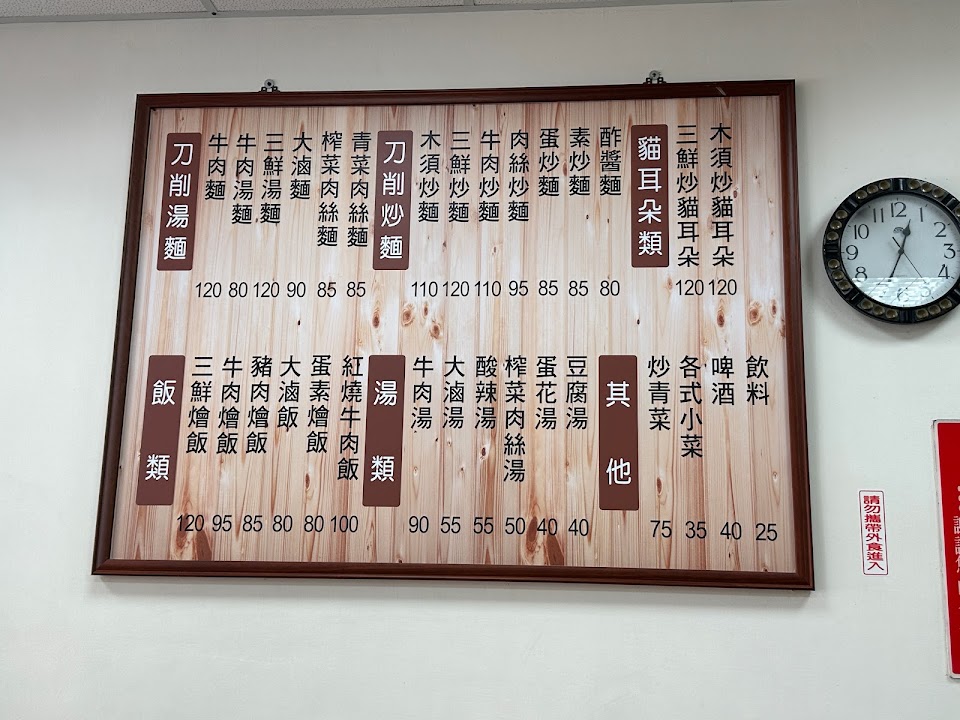 刀削湯麵
牛肉麵 120
牛肉湯麵 80
三鮮湯麵 120
大滷麵 90
榨菜肉絲麵 85
青菜肉絲麵 85
刀削炒麵
木須炒麵 110
三鮮炒麵 120
牛肉炒麵 110
肉絲炒麵 95
蛋炒麵 85
素炒麵 85
酢醬麵 80
貓耳朵類
三鮮炒貓耳朵 120
木須炒貓耳朵 120
飯類
三鮮燴飯 120
牛肉燴飯 95
豬肉燴飯 85
大滷飯 80
蛋素燴飯 80
紅燒牛肉飯 100
湯類
牛肉湯 90
大滷湯 55
酸辣湯 55
榨菜肉絲湯 50
蛋花湯 40
豆腐湯 40
其他
炒青菜 75
各式小菜 35
啤酒 40
飲料 25
11 12 1
10 2
9 3
8 4
請勿攜帶外食進入